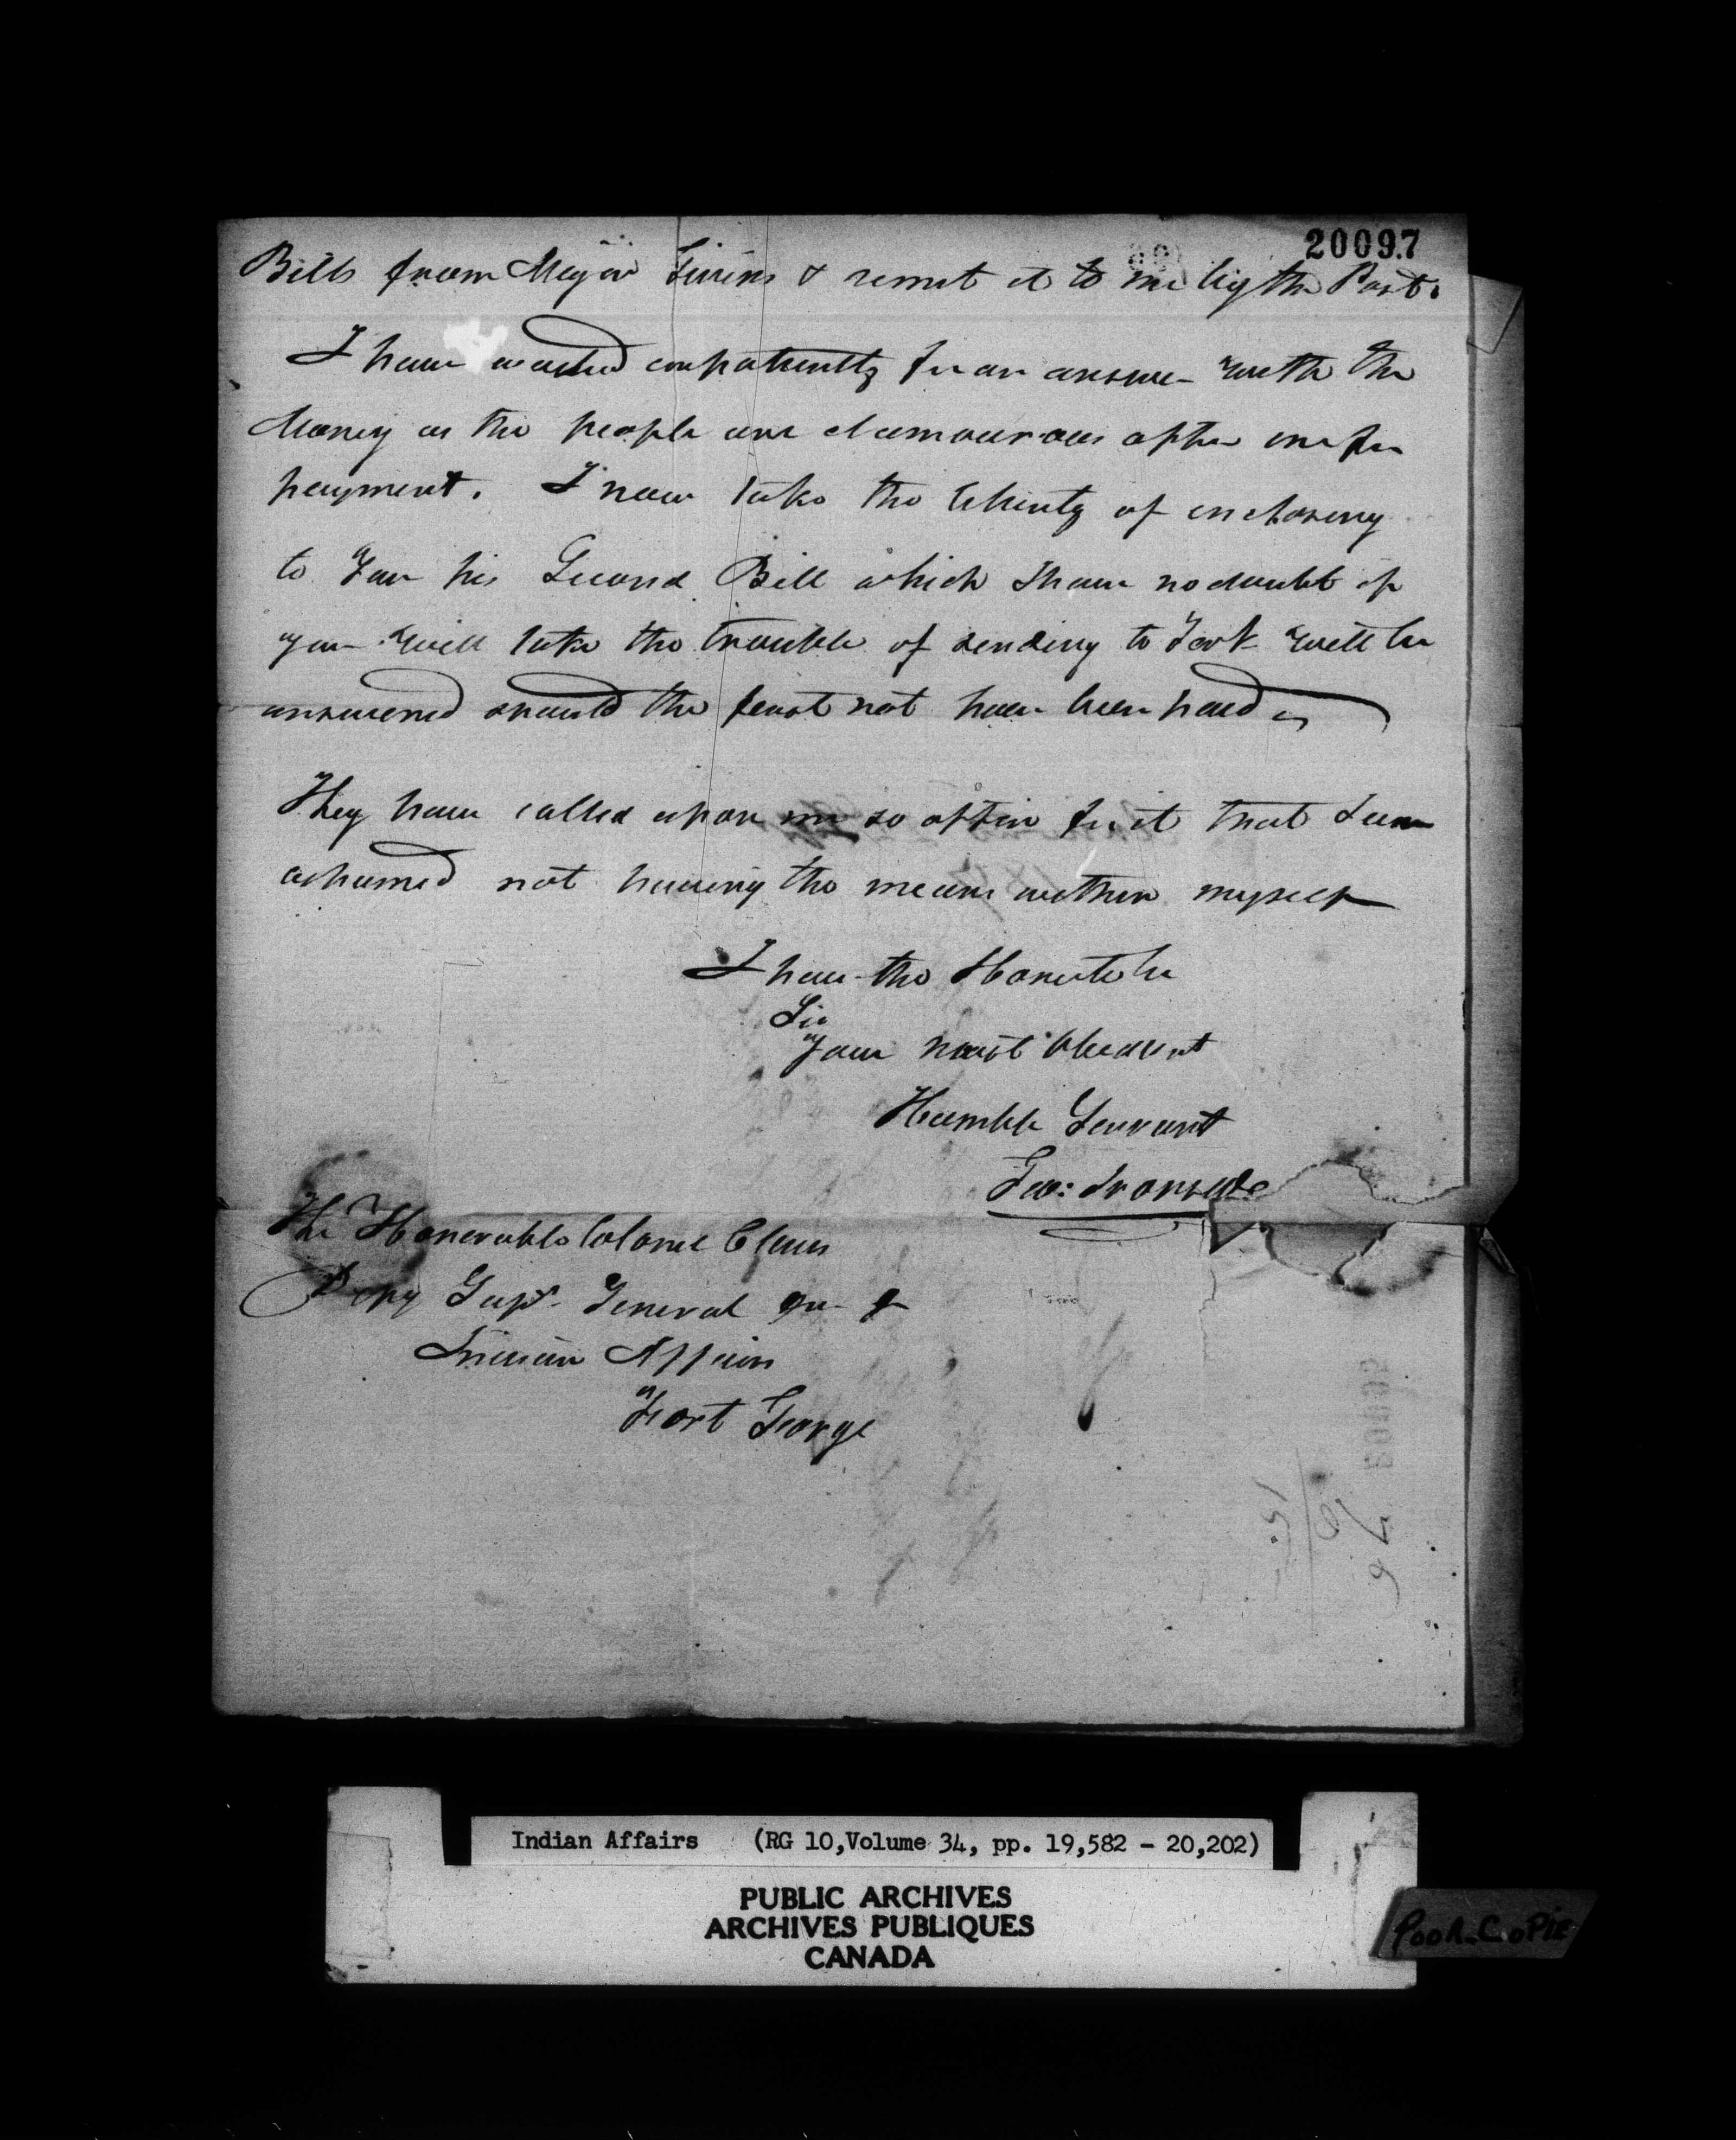 20097
Bills from Major Givins & remit it to me by the Post.
I have waited impatiently for an answer with the
Money as the people are clamourous after me for
payment. I now take the liberty of inclosing
to you his Second Bill which I have no doubt if
you will take the trouble of sending to York will be
answered should the first not have been paid
They have called upon me so often for it that I am
ashamed not having the means within myself
I have the Honor to be
Sir
Your most Obedient
Humble Servant
Geo: Ironside
The Honorable Colonel Claus
Depy Supt. General
Indian Affairs
Fort George
Indian Affairs (RG 10, Volume 34, pp. 19,582 - 20,202)
PUBLIC ARCHIVES
ARCHIVES PUBLIQUES
CANADA
POOR COPIE